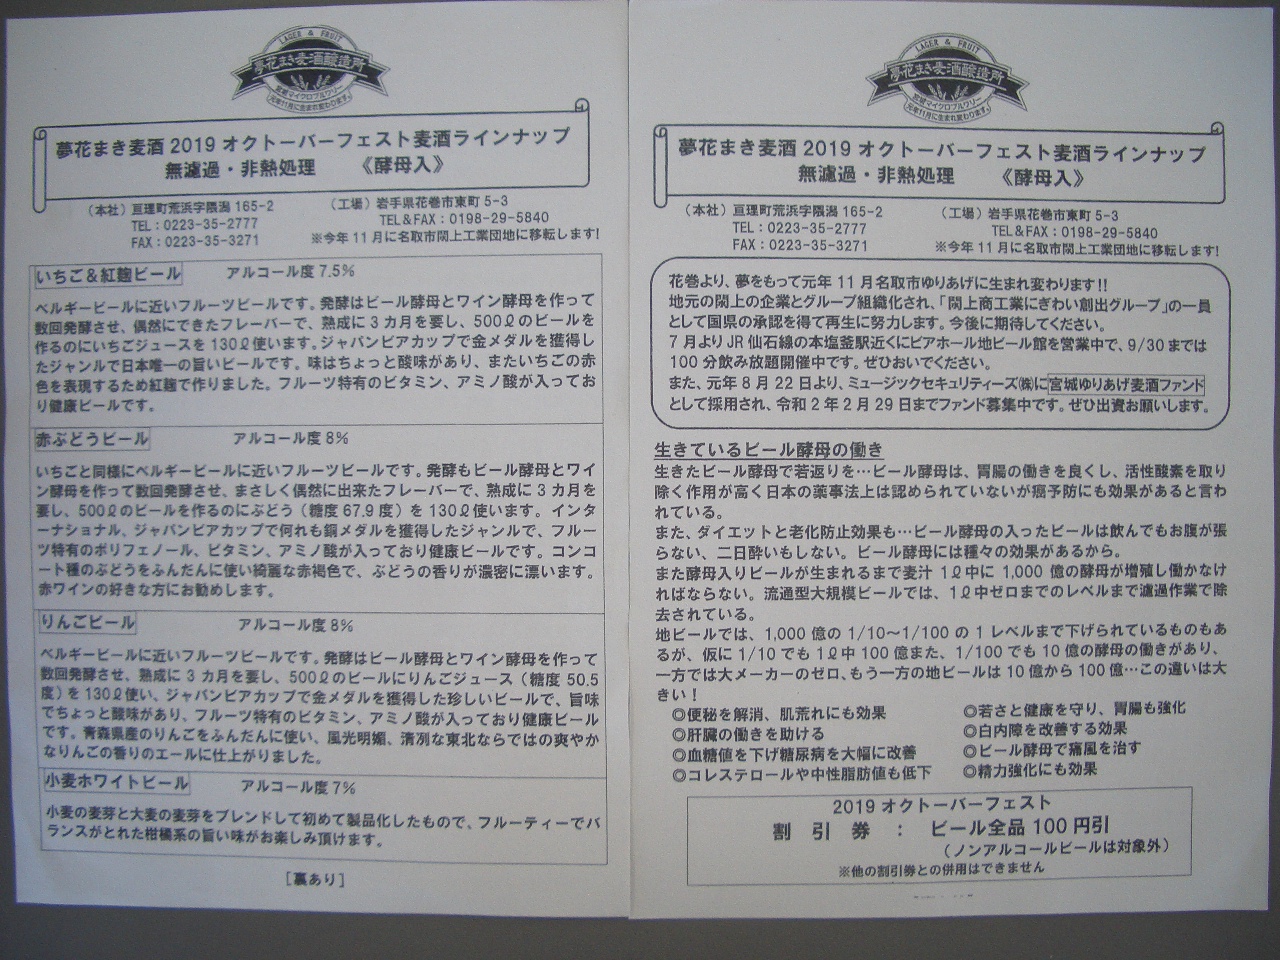 LAGER & FRUIT
夢花まき麦酒醸造所
宮城マイクロブルワリー
元年11月に生まれ変わります。
夢花まき麦酒 2019 オクトーバーフェスト麦酒ラインナップ
無濾過・非熱処理　《酵母入》
（本社）亘理町荒浜字隈潟 165-2　（工場）岩手県花巻市東町 5-3
TEL：0223-35-2777　TEL＆FAX：0198-29-5840
FAX：0223-35-3271　※今年 11 月に名取市閖上工業団地に移転します!
いちご＆紅麹ビール　アルコール度 7.5%
ベルギービールに近いフルーツビールです。発酵はビール酵母とワイン酵母を作って
数回発酵させ、偶然にできたフレーバーで、熟成に 3 カ月を要し、500ℓのビールを
作るのにいちごジュースを 130ℓ使います。ジャパンビアカップで金メダルを獲得し
たジャンルで日本唯一の旨いビールです。味はちょっと酸味があり、またいちごの赤
色を表現するため紅麹で作りました。フルーツ特有のビタミン、アミノ酸が入ってお
り健康ビールです。
赤ぶどうビール　アルコール度 8%
いちごと同様にベルギービールに近いフルーツビールです。発酵もビール酵母とワイ
ン酵母を作って数回発酵させ、まさしく偶然に出来たフレーバーで、熟成に 3 カ月を
要し、500ℓのビールを作るのにぶどう（糖度 67.9 度）を 130ℓ使います。インタ
ーナショナル、ジャパンビアカップで何れも銅メダルを獲得したジャンルで、フルー
ツ特有のポリフェノール、ビタミン、アミノ酸が入っており健康ビールです。コンコ
ート種のぶどうをふんだんに使い綺麗な赤褐色で、ぶどうの香りが濃密に漂います。
赤ワインの好きな方にお勧めします。
りんごビール　アルコール度 8%
ベルギービールに近いフルーツビールです。発酵はビール酵母とワイン酵母を作って
数回発酵させ、熟成に 3 カ月を要し、500ℓのビールにりんごジュース（糖度 50.5
度）を 130ℓ使い、ジャパンビアカップで金メダルを獲得した珍しいビールで、旨味
でちょっと酸味があり、フルーツ特有のビタミン、アミノ酸が入っており健康ビール
です。青森県産のりんごをふんだんに使い、風光明媚、清冽な東北ならではの爽やか
なりんごの香りのエールに仕上がりました。
小麦ホワイトビール　アルコール度 7%
小麦の麦芽と大麦の麦芽をブレンドして初めて製品化したもので、フルーティーでバ
ランスがとれた柑橘系の旨い味がお楽しみ頂けます。
［裏あり］
LAGER & FRUIT
夢花まき麦酒醸造所
宮城マイクロブルワリー
元年11月に生まれ変わります。
夢花まき麦酒 2019 オクトーバーフェスト麦酒ラインナップ
無濾過・非熱処理　《酵母入》
（本社）亘理町荒浜字隈潟 165-2　（工場）岩手県花巻市東町 5-3
TEL：0223-35-2777　TEL＆FAX：0198-29-5840
FAX：0223-35-3271　※今年 11 月に名取市閖上工業団地に移転します!
花巻より、夢をもって元年 11 月名取市ゆりあげに生まれ変わります!!
地元の閖上の企業とグループ組織化され、「閖上商工業にぎわい創出グループ」の一員
として国県の承認を得て再生に努力します。今後に期待してください。
7 月より JR 仙石線の本塩釜駅近くにビアホール地ビール館を営業中で、9/30 までは
100 分飲み放題開催中です。ぜひおいでください。
また、元年 8 月 22 日より、ミュージックセキュリティーズ㈱に宮城ゆりあげ麦酒ファンド
として採用され、令和 2 年 2 月 29 日までファンド募集中です。ぜひ出資お願いします。
生きているビール酵母の働き
生きたビール酵母で若返りを…ビール酵母は、胃腸の働きを良くし、活性酸素を取り
除く作用が高く日本の薬事法上は認められていないが癌予防にも効果があると言わ
れている。
また、ダイエットと老化防止効果も…ビール酵母の入ったビールは飲んでもお腹が張
らない、二日酔いもしない。ビール酵母には種々の効果があるから。
また酵母入りビールが生まれるまで麦汁 1ℓ中に 1,000 億の酵母が増殖し働かなけ
ればならない。流通型大規模ビールでは、1ℓ中ゼロまでのレベルまで濾過作業で除
去されている。
地ビールでは、1,000 億の 1/10～1/100 の 1 レベルまで下げられているものもあ
るが、仮に 1/10 でも 1ℓ中 100 億また、1/100 でも 10 億の酵母の働きがあり、
一方では大メーカーのゼロ、もう一方の地ビールは 10 億から 100 億…この違いは大
きい！
◎便秘を解消、肌荒れにも効果　◎若さと健康を守り、胃腸も強化
◎肝臓の働きを助ける　◎白内障を改善する効果
◎血糖値を下げ糖尿病を大幅に改善　◎ビール酵母で痛風を治す
◎コレステロールや中性脂肪値も低下　◎精力強化にも効果
2019 オクトーバーフェスト
割 引 券 ： ビール全品 100 円引
（ノンアルコールビールは対象外）
※他の割引券との併用はできません